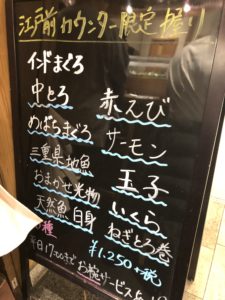 江戸前カウンター限定握り
インドまぐろ
中とろ
めばちまぐろ
三重県地魚
おまかせ光物
天然魚白身
赤えび
サーモン
玉子
いくら
ねぎとろ巻
種
¥1,250+税
平日17:00まで
サービス